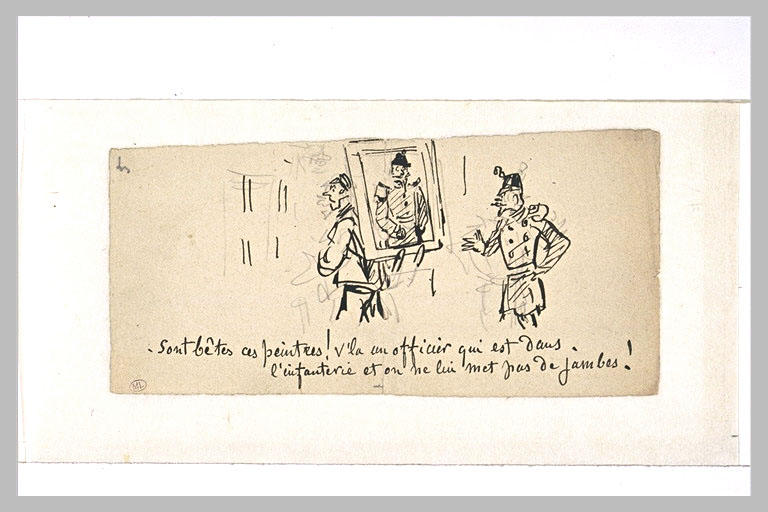 - Sont bêtes ces peintres! v'la un officier qui est dans.
l'infanterie et on ne lui met pas de jambes!
ML